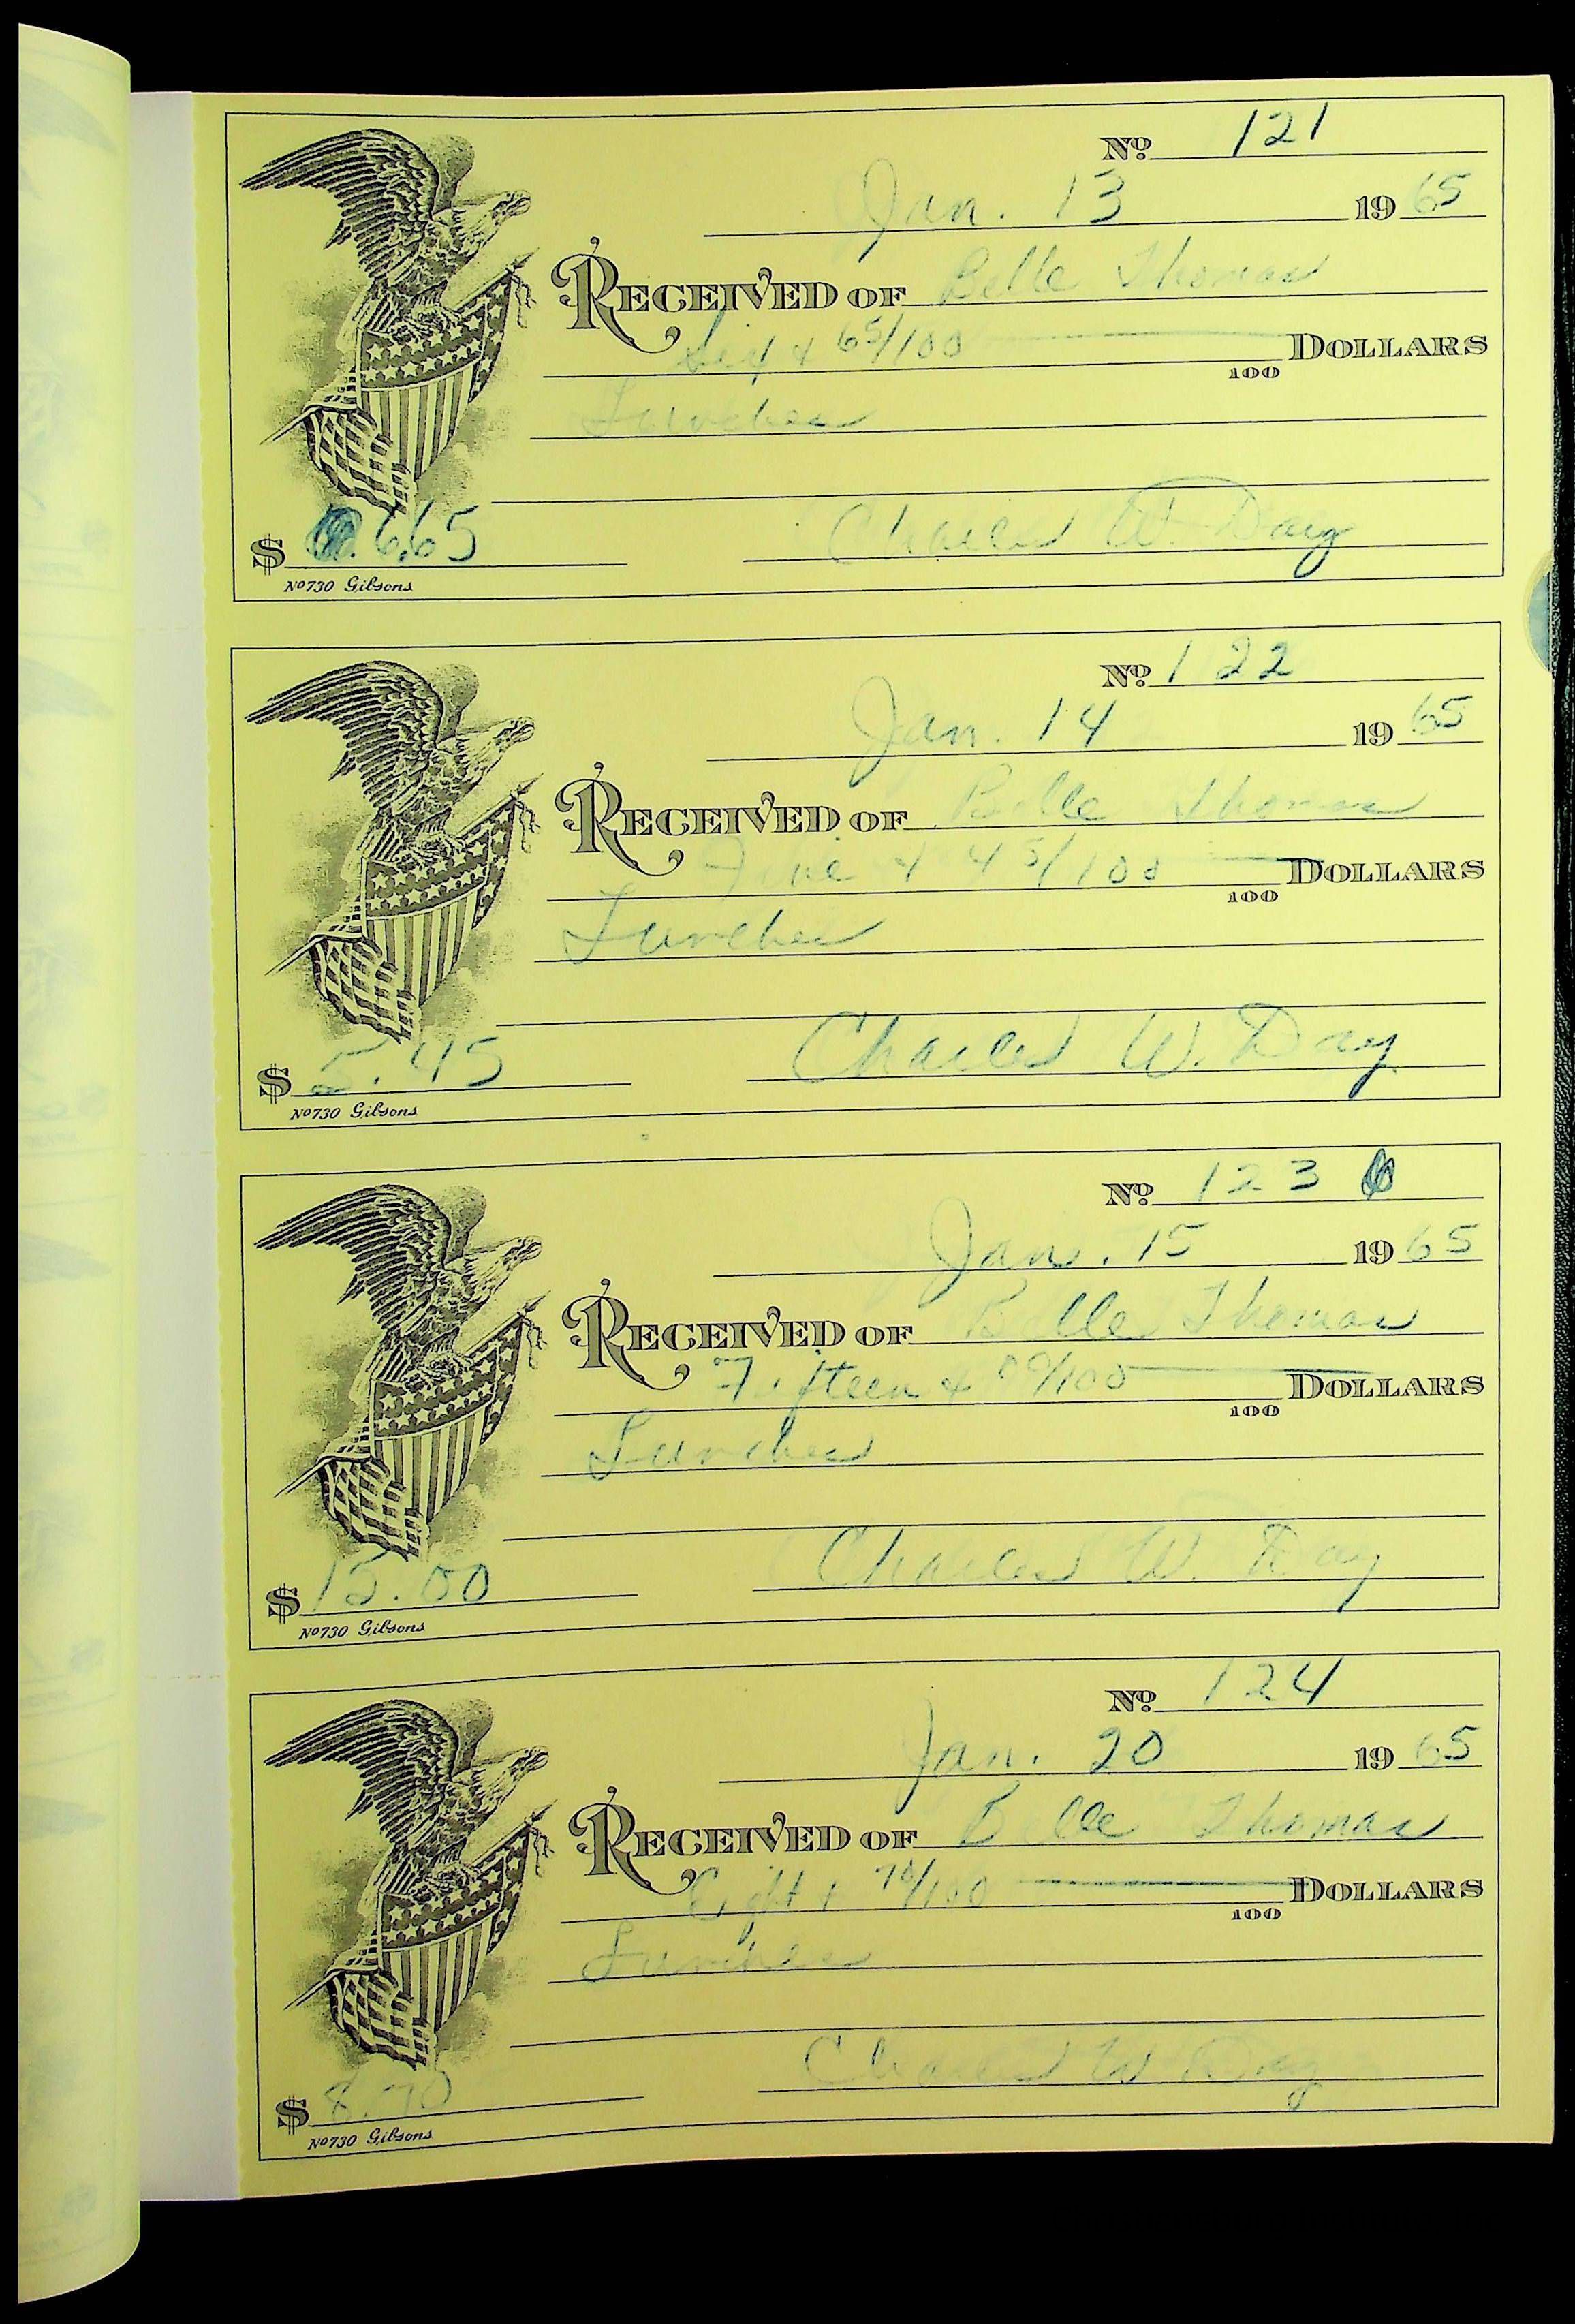 No. 121
Jan. 13 1965
RECEIVED OF Belle Thomas
Six & 65/100 DOLLARS
100
Lunches
$ 6.65 Charles W. Day
No 730 Gibsons
No. 122
Jan. 14 1965
RECEIVED OF Belle Thomas
Five & 45/100 DOLLARS
100
Lunches
$ 5.45 Charles W. Day
No 730 Gibsons
No. 123
Jan. 15 1965
RECEIVED OF Belle Thomas
Fifteen & 00/100 DOLLARS
100
Lunches
$ 15.00 Charles W. Day
No 730 Gibsons
No. 124
Jan. 20 1965
RECEIVED OF Belle Thomas
Eight & 70/100 DOLLARS
100
Lunches
$ 8.70 Charles W. Day
No 730 Gibsons